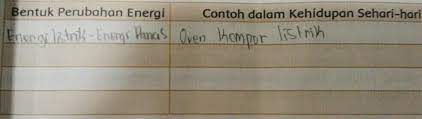 Bentuk Perubahan Energi Contoh dalam Kehidupan Sehari-hari
Energi listrik-Energi Panas Oven Kompor listrik